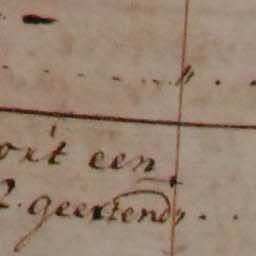 oxt een
2. geextend,